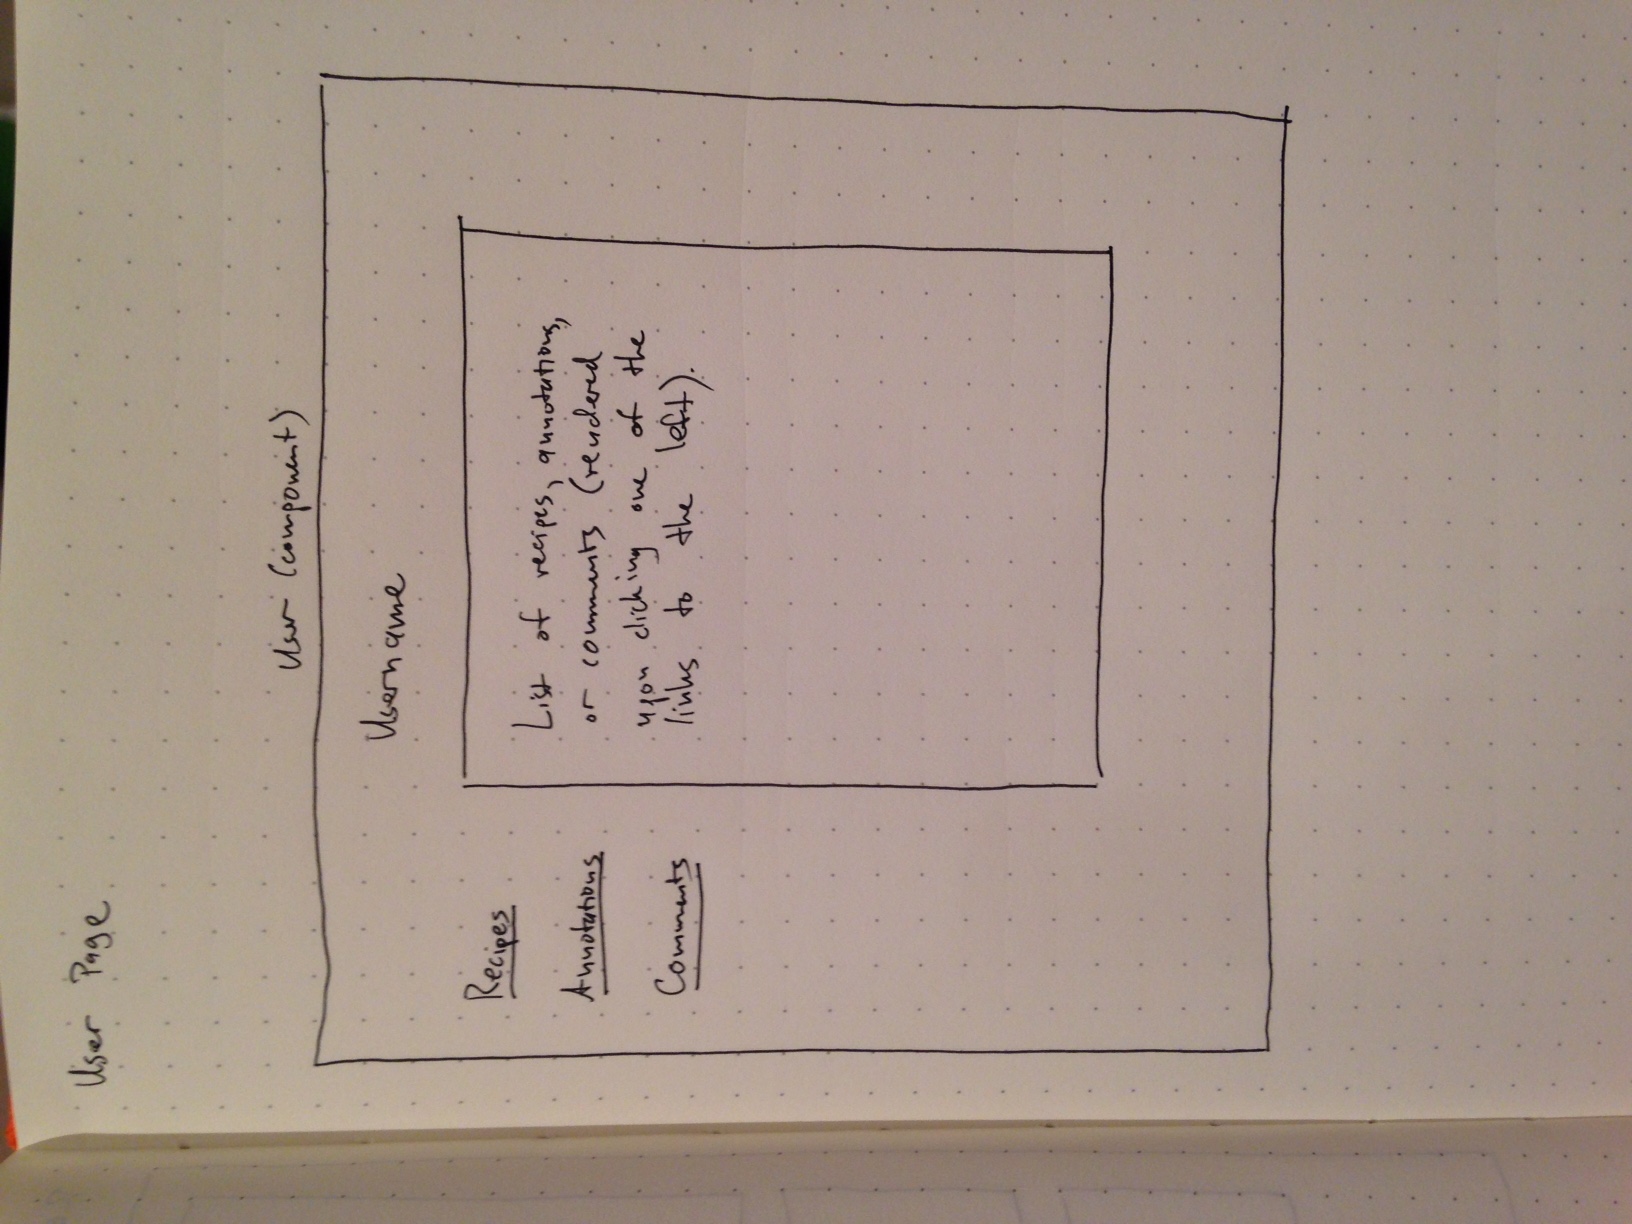 User Page
User (component)
Username
Recipes
Annotations
Comments
List of recipes, annotations,
or comments (rendered
upon clicking one of the
links to the left).